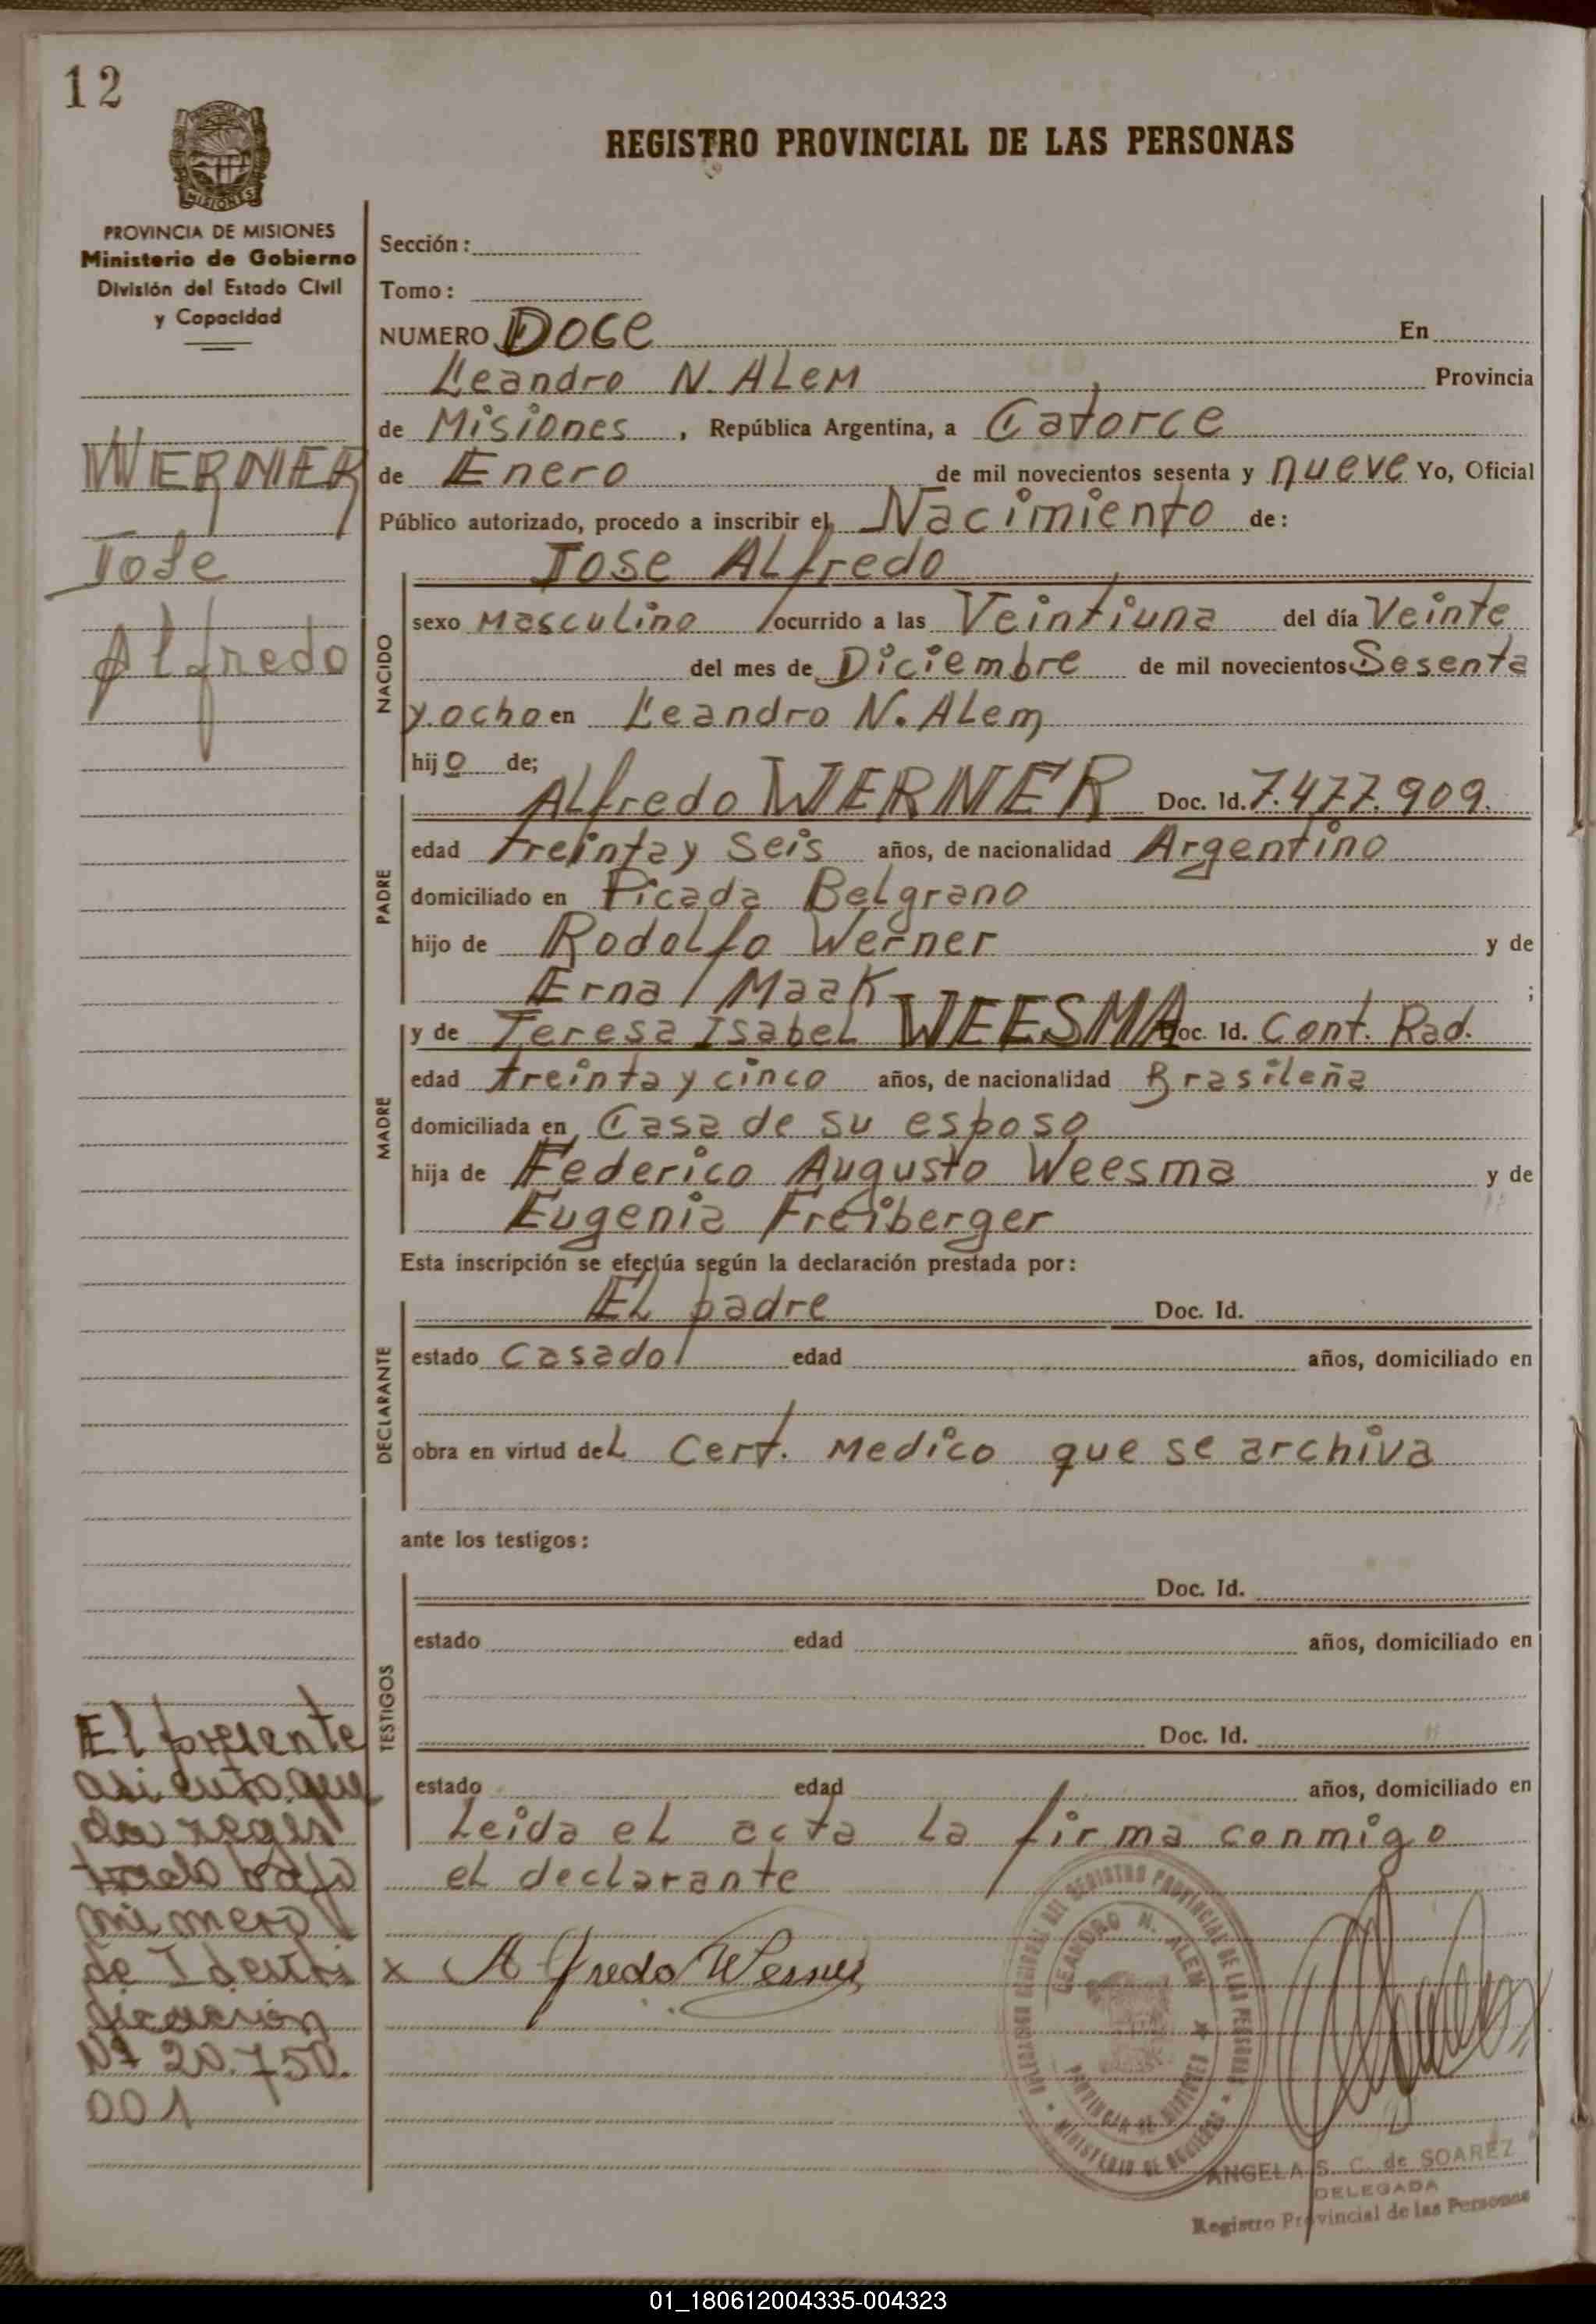 12
REGISTRO PROVINCIAL DE LAS PERSONAS
MISIONES
PROVINCIA DE MISIONES
Ministerio de Gobierno
División del Estado Civil
y Capacidad
WERNER
Jose
Alfredo
Sección:
Tomo:
NUMERO Doce En
Leandro N. ALem Provincia
de Misiones, República Argentina, a Catorce
de Enero de mil novecientos sesenta y nueve Yo, Oficial
Público autorizado, procedo a inscribir el Nacimiento de:
Jose ALfredo
NACIDO
sexo Masculino ocurrido a las Veintiuna del día Veinte
del mes de Diciembre de mil novecientos Sesenta
y ocho en Leandro N. ALem
hijo de;
PADRE
ALfredo WERNER Doc. Id. 7.477.909.
edad treinta y seis años, de nacionalidad Argentino
domiciliado en Picada Belgrano
hijo de Rodolfo Werner y de
Erna Maak ;
MADRE
y de Teresa Isabel WEESMA Doc. Id. Cont. Rad.
edad treinta y cinco años, de nacionalidad Brasileña
domiciliada en Casa de su esposo
hija de Federico Augusto Weesma y de
Eugenia Freiberger
Esta inscripción se efectúa según la declaración prestada por:
DECLARANTE
EL padre Doc. Id.
estado Casado edad años, domiciliado en
obra en virtud deL Cert. Medico que se archiva
ante los testigos:
TESTIGOS
Doc. Id.
estado edad años, domiciliado en
Doc. Id.
estado edad años, domiciliado en
Leida el acta la firma conmigo
el declarante
x Alfredo Werner
El presente
asiento que
da regis
trado bajo
numero
de Identi
ficación
Nº 20.750.
001
DELEGACION REGIONAL DEL REGISTRO PROVINCIAL DE LAS PERSONAS
LEANDRO N. ALEM
PROVINCIA DE MISIONES
MINISTERIO DE GOBIERNO
ANGELA S. C. de SOAREZ
DELEGADA
Registro Provincial de las Personas
01_180612004335-004323